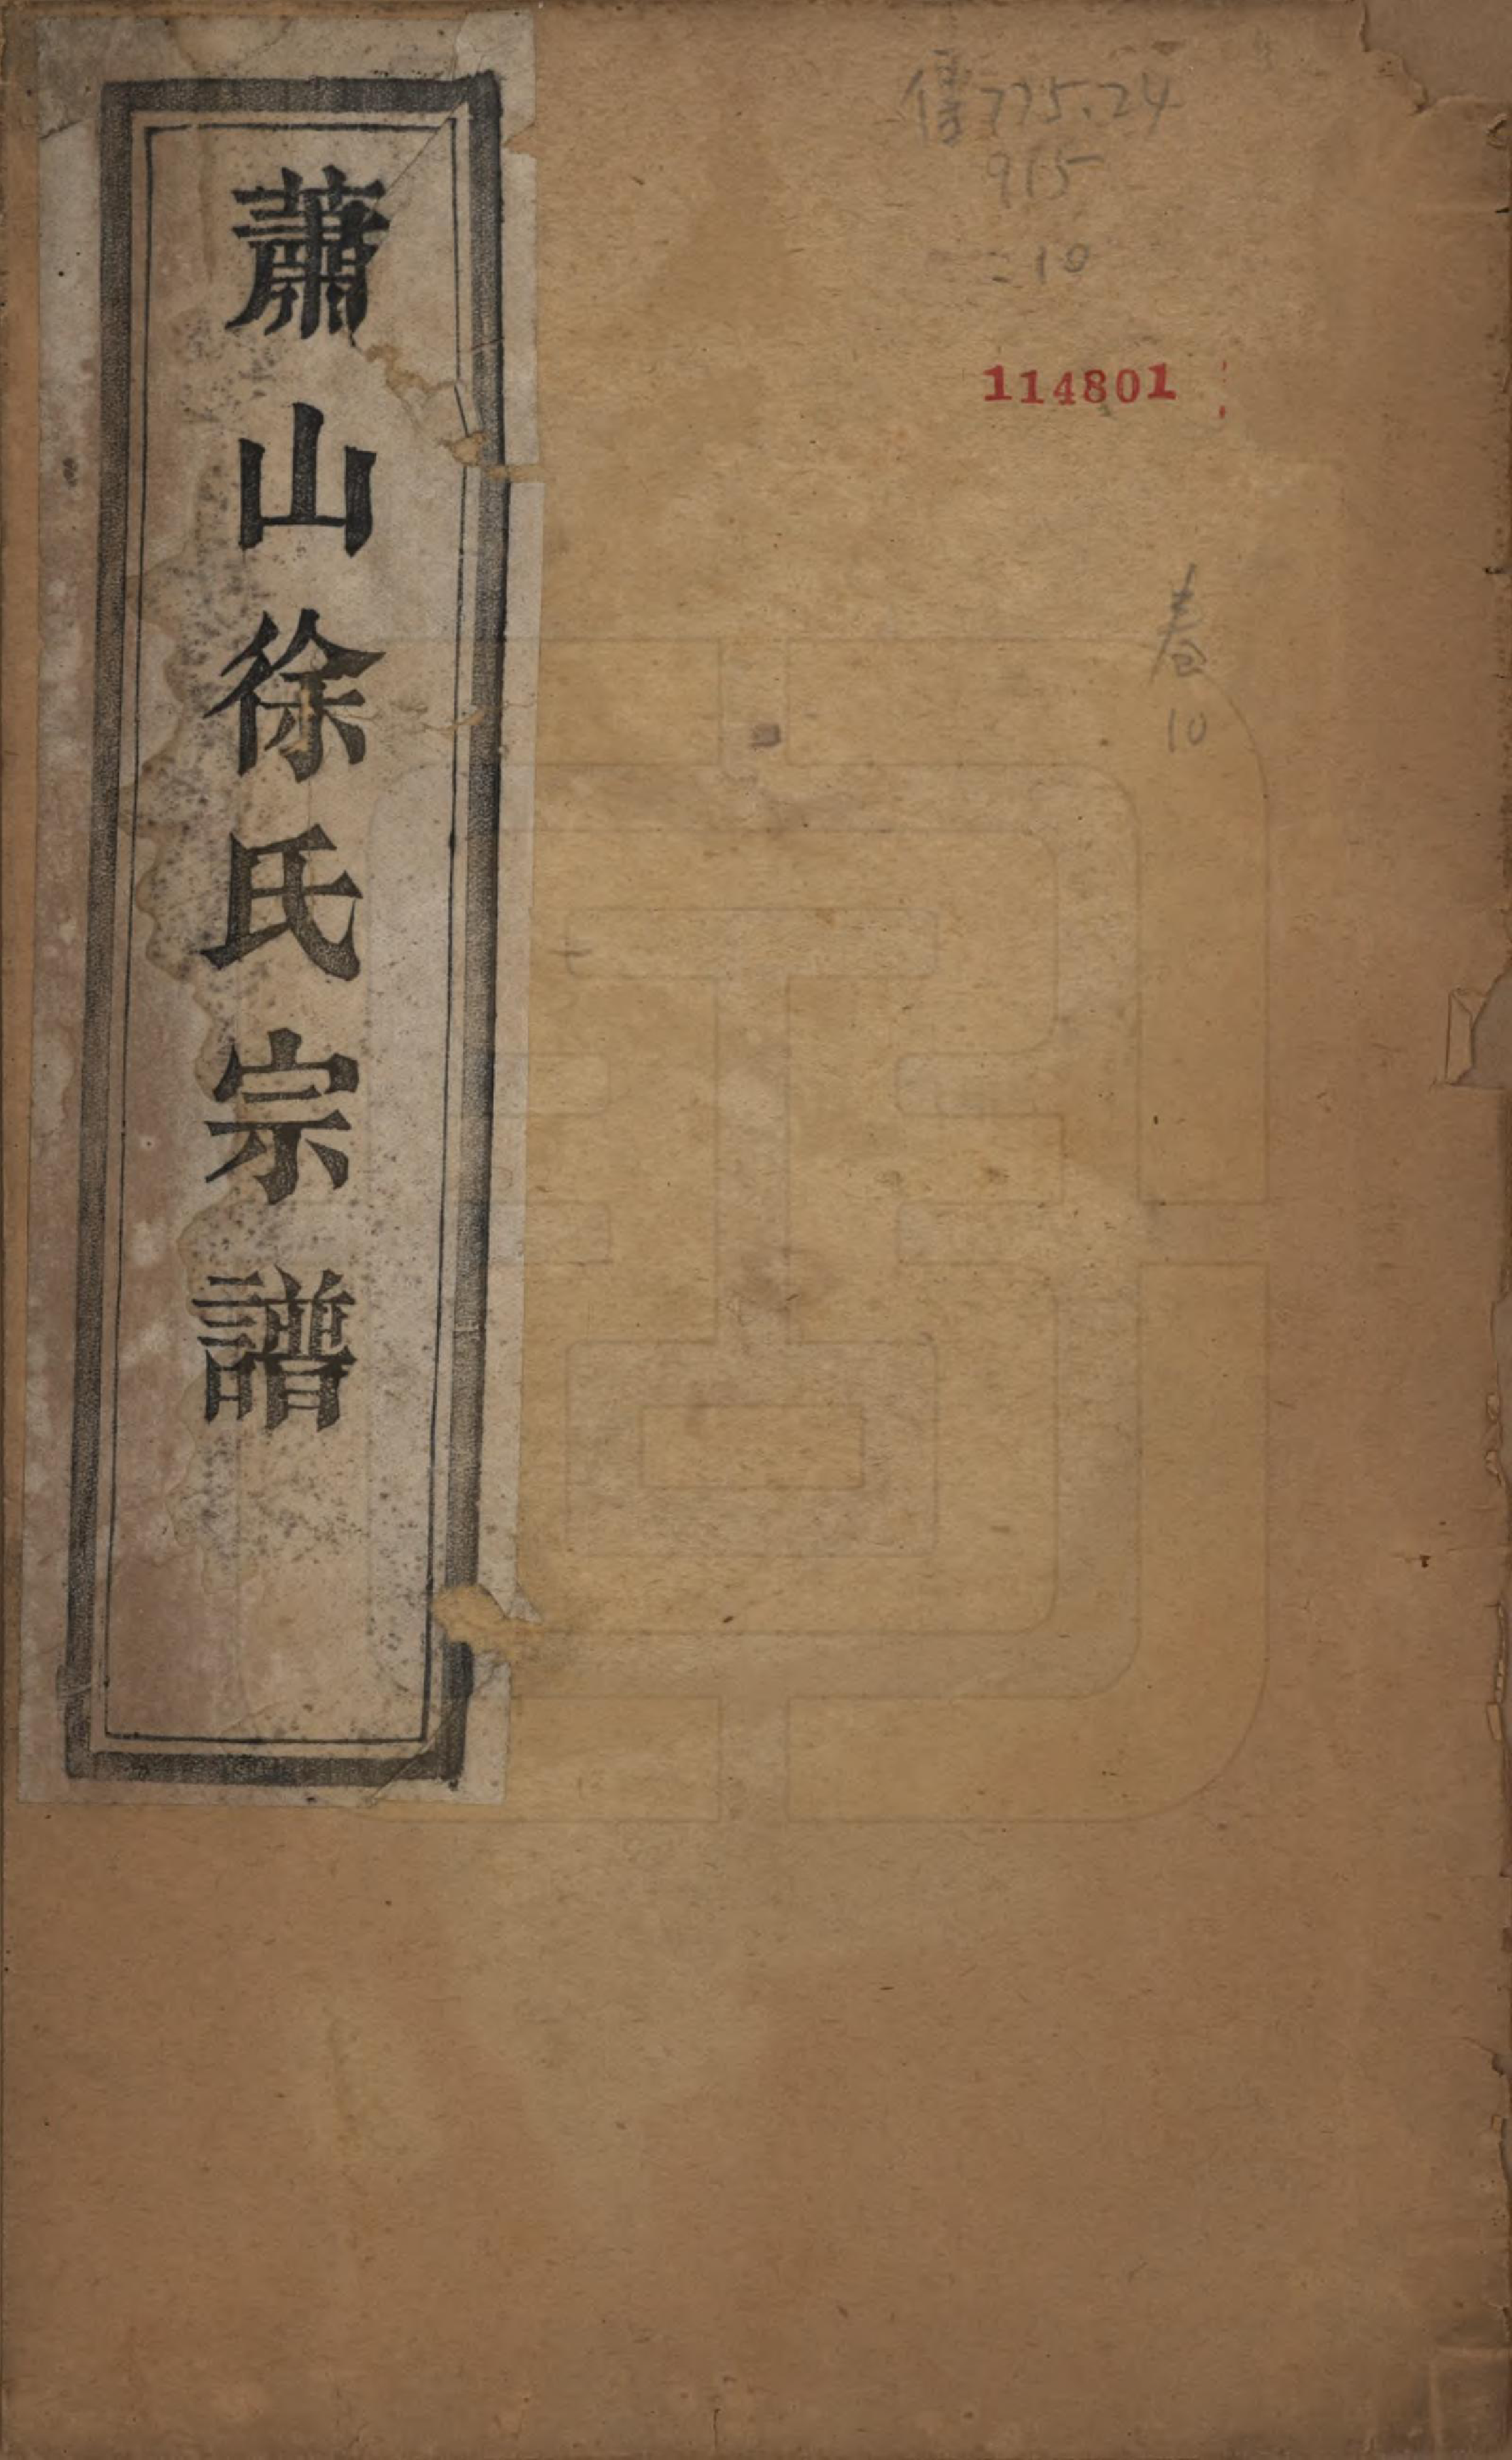 蕭山徐氏宗譜
傳775.24
915
:10
114801
春
10